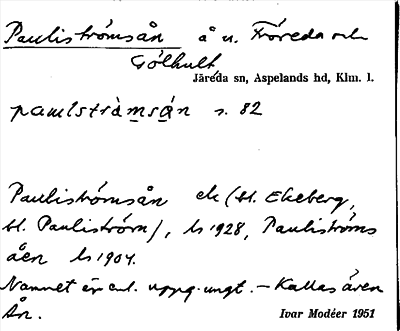 Pauliströmsån å n. Fröreda och
Gölhult
Järeda sn, Aspelands hd, Klm. l.
paulstràmsán s. 82
Pauliströmsån ek (bl. Ekeberg,
bl. Pauliström), ls 1928, Pauliströms
åen ls 1904.
Namnet är enl. uppg. ungt. – Kallas även
Ån.
Ivar Modéer 1951